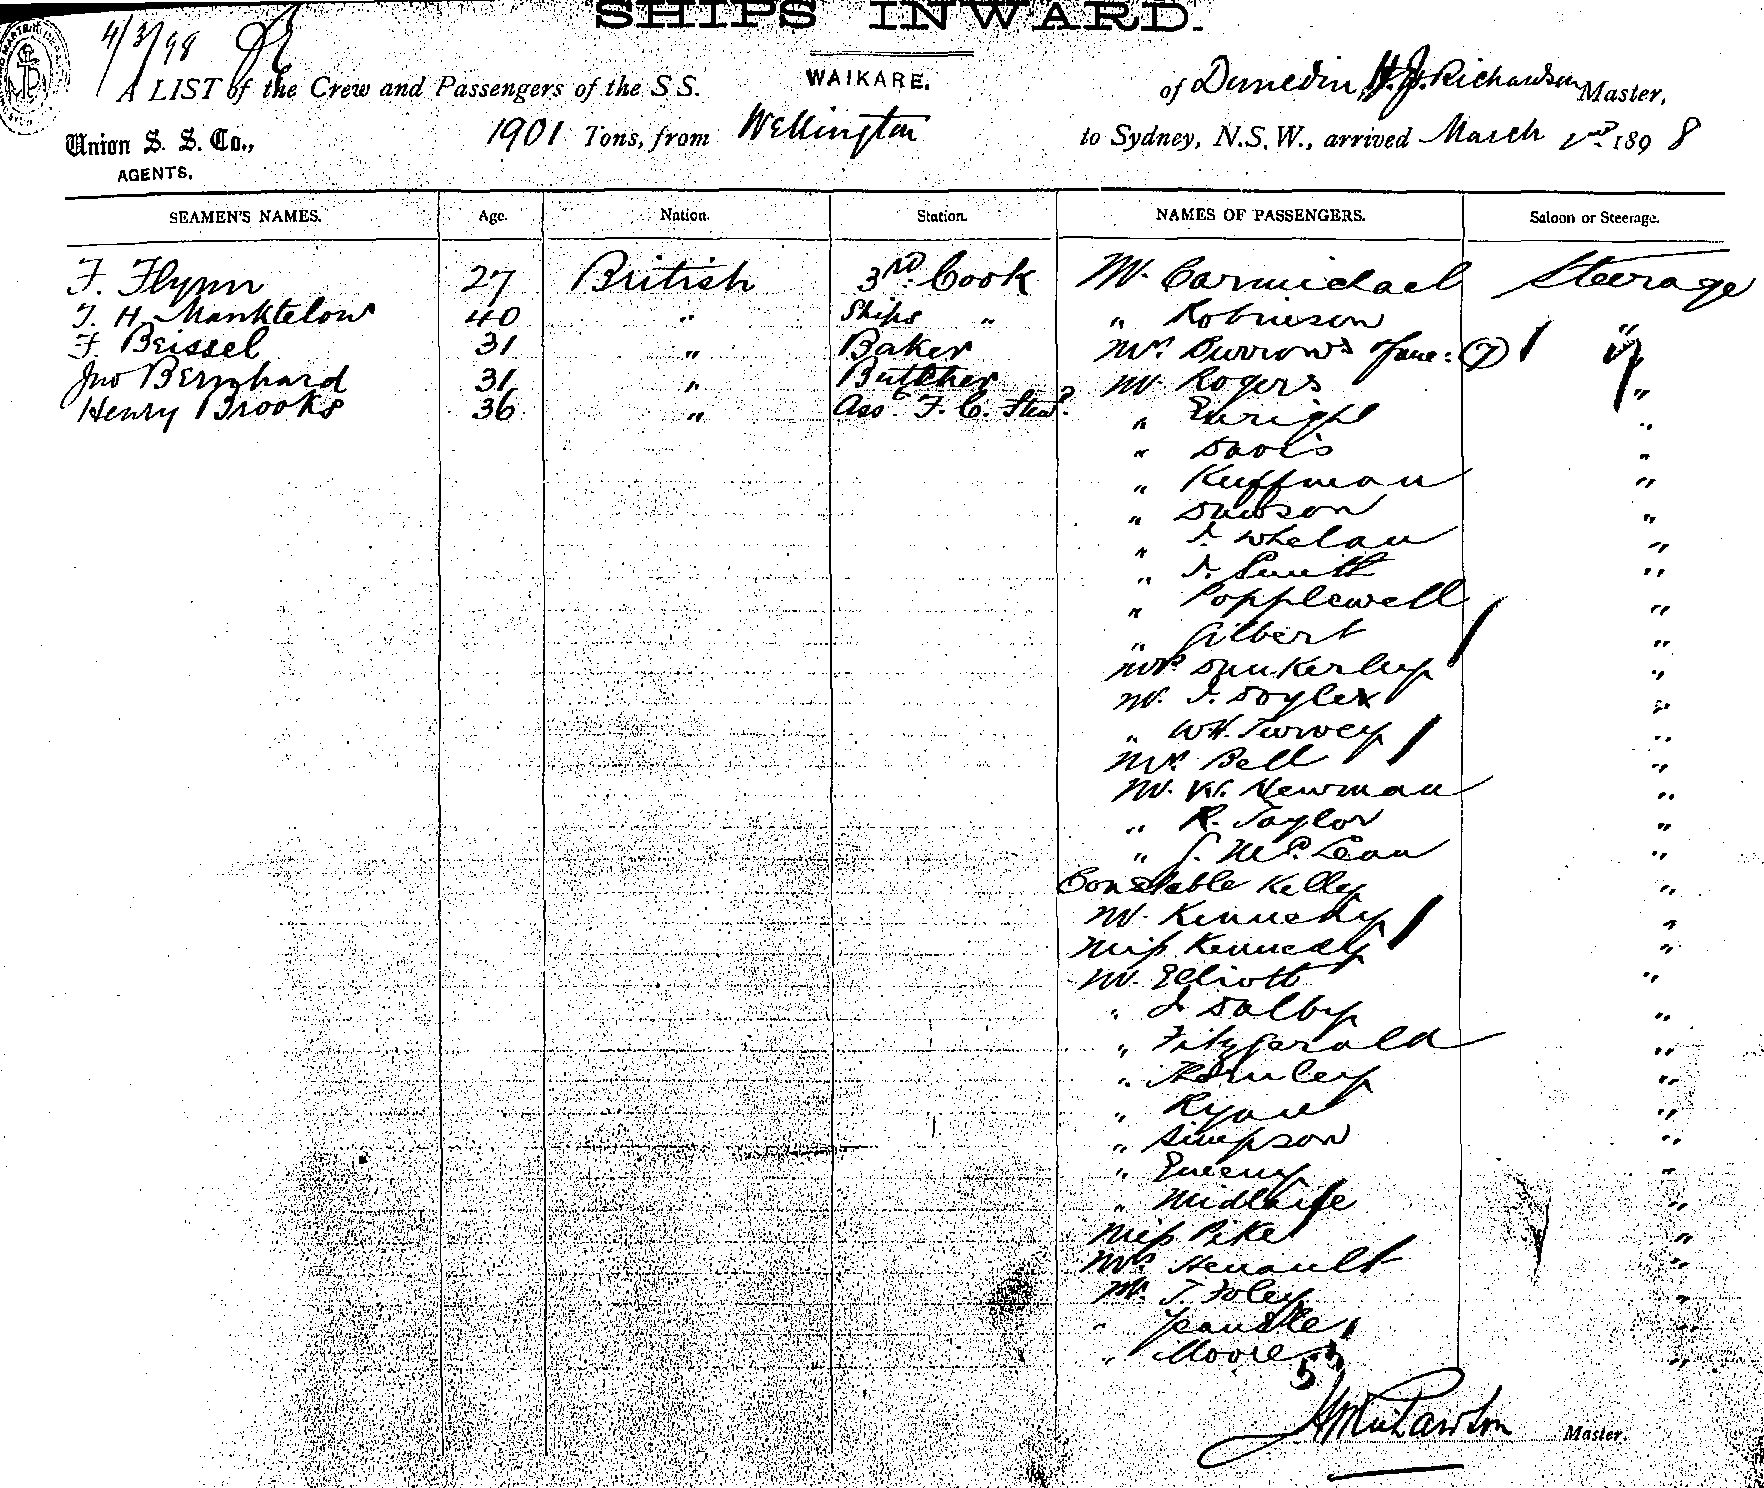 SHIPS INWARD.
4/3/98
A LIST of the Crew and Passengers of the S.S. WAIKARE. of Dunedin, H. J. Richardson Master,
Union S. S. Co., AGENTS. 1901 Tons, from Wellington to Sydney, N.S.W., arrived March 2nd 1898
SEAMEN'S NAMES. Age. Nation. Station. NAMES OF PASSENGERS. Saloon or Steerage.
F. Flynn 27 British 3rd Cook Mr. Carmichael Steerage
T. H. Manktelow 40 " Ships " " Robinson "
F. Beissel 31 " Baker Mrs Burrows & fam: (7) "
Jno Bernhard 31 " Butcher Mr Rogers "
Henry Brooks 36 " Ass. F. C. Stewd. " Enright "
" Davis "
" Kuffman "
" Dawson "
" J. Whelan "
" J. Smith "
" Popplewell "
" Gilbert "
Mrs Dunkerley "
Mr. J. Doyle "
" W H. Turvey "
Mrs Bell "
Mr. W. Newman "
" R. Taylor "
" J. McLean "
Constable Kelly "
Mr. Kennedy "
Miss Kennedy "
Mr. Elliott "
" J Dalby "
" Fitzgerald "
" Thornley "
" Ryan "
" Simpson "
" "
" "
Miss Pike "
Mrs Henault "
Mr. T Foley "
" "
" Moore "
Master.